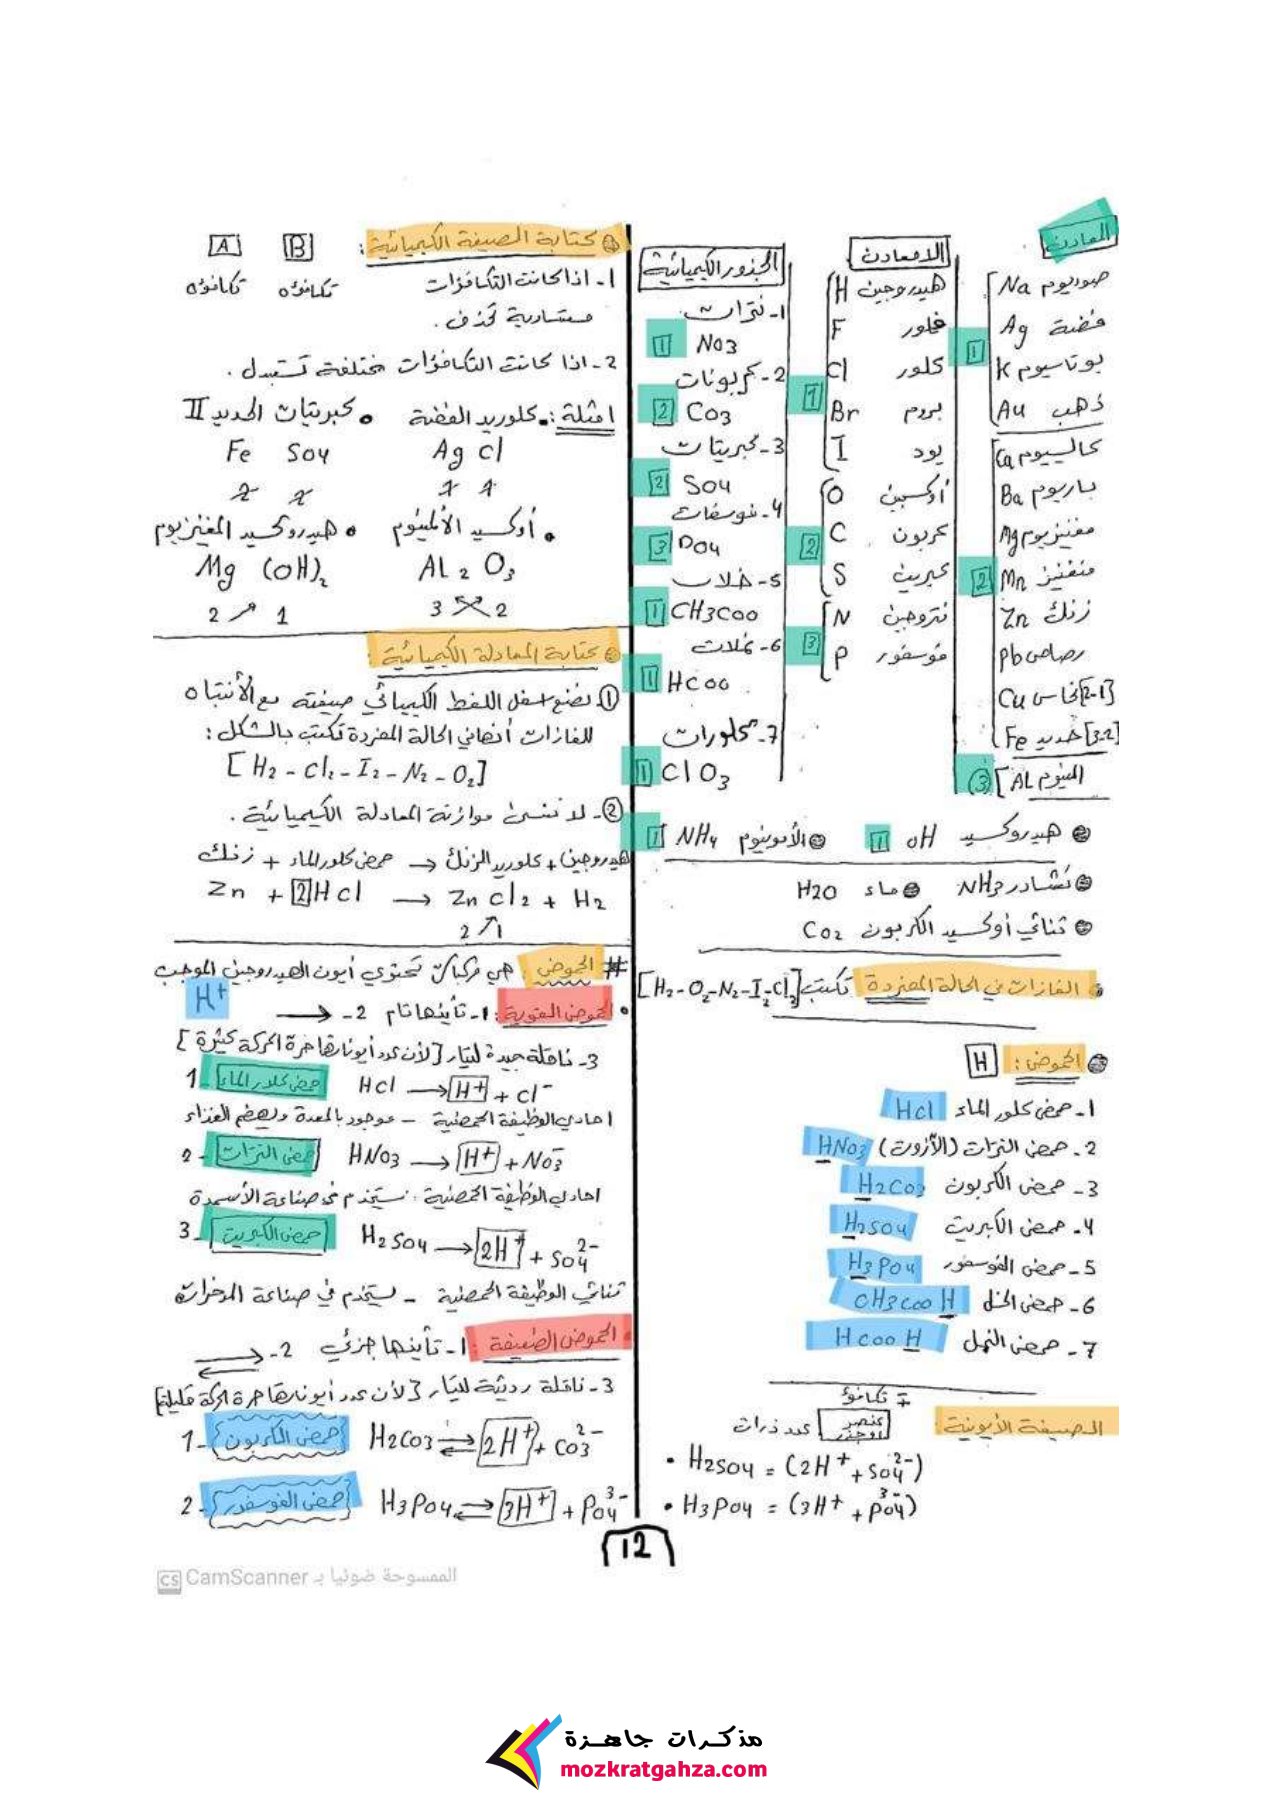 المعادن
صوديوم Na
فضة Ag
بوتاسيوم K
ذهب Au
1
كالسيوم Ca
باريوم Ba
مغنيزيوم Mg
منغنيز Mn
زنك Zn
رصاص Pb
نحاس Cu [2-1]
حديد Fe [3-2]
2
المنيوم AL [
3
اللامعادن
هيدروجين H
فلور F
كلور Cl
بروم Br
يود I
1
أوكسجين O
كربون C
كبريت S
2
نتروجين N
فوسفور P
3
الجذور الكيميائية
1- نترات
NO3 1
2- كربونات
CO3 2
3- كبريتات
SO4 2
4- فوسفات
PO4 3
5- خلات
CH3COO 1
6- نملات
HCOO 1
7- كلورات
ClO3 1
هيدروكسيد OH 1
الأمونيوم NH4 1
نشادر NH3 ماء H2O
ثنائي أوكسيد الكربون CO2
الغازات في الحالة المفردة تكتب [H2-O2-N2-I2-Cl2]
الحموض: H
1- حمض كلور الماء HCl
2- حمض النترات (الآزوت) HNO3
3- حمض الكربون H2CO3
4- حمض الكبريت H2SO4
5- حمض الفوسفور H3PO4
6- حمض الخل CH3COOH
7- حمض النمل HCOOH
الصيغة الأيونية:
∓ تكافؤ
عنصر أو جذر
عدد ذرات
• H2SO4 = (2H+ + SO4 2-)
• H3PO4 = (3H+ + PO4 3-)
كتابة الصيغة الكيميائية:
B A
تكافؤه تكافؤه
1- اذا كانت التكافؤات
متساوية تحذف.
2- اذا كانت التكافؤات مختلفة تستبدل.
امثلة: • كلوريد الفضة • كبريتات الحديد II
Ag Cl Fe SO4
1 1 2 2
• أوكسيد الألمنيوم • هيدروكسيد المغنزيوم
AL2O3 Mg(OH)2
3 2 2 1
كتابة المعادلة الكيميائية:
① نضع اسفل اللفظ الكيميائي صيغته مع الأنتباه
للغازات أنها في الحالة المفردة تكتب بالشكل:
[H2-Cl2-I2-N2-O2]
②- لا ننسى موازنة المعادلة الكيميائية.
هيدروجين + كلوريد الزنك ← حمض كلور الماء + زنك
Zn + 2HCl → ZnCl2 + H2
2 1
# الحموض: هي مركبات تحتوي أيون الهيدروجين الموجب
H+
• الحموض القوية: 1- تأينها تام 2- →
3- ناقلة جيدة للتيار [لأن عدد أيوناتها حرة الحركة كثيرة]
1- حمض كلور الماء HCl → H+ + Cl-
احادي الوظيفة الحمضية - موجود بالمعدة ويهضم الغذاء
2- حمض النترات HNO3 → H+ + NO3-
احادي الوظيفة الحمضية: نستخدم في صناعة الأسمدة
3- حمض الكبريت H2SO4 → 2H+ + SO4 2-
ثنائي الوظيفة الحمضية - يستخدم في صناعة المدخرات
• الحموض الضعيفة: 1- تأينها جزئي 2- ⇌
3- ناقلة رديئة للتيار [لأن عدد أيوناتها حرة الحركة قليلة]
1- حمض الكربون H2CO3 ⇌ 2H+ + CO3 2-
2- حمض الفوسفور H3PO4 ⇌ 3H+ + PO4 3-
12
الممسوحة ضوئيا بـ CamScanner
CS
مذكرات جاهزة
mozkratgahza.com